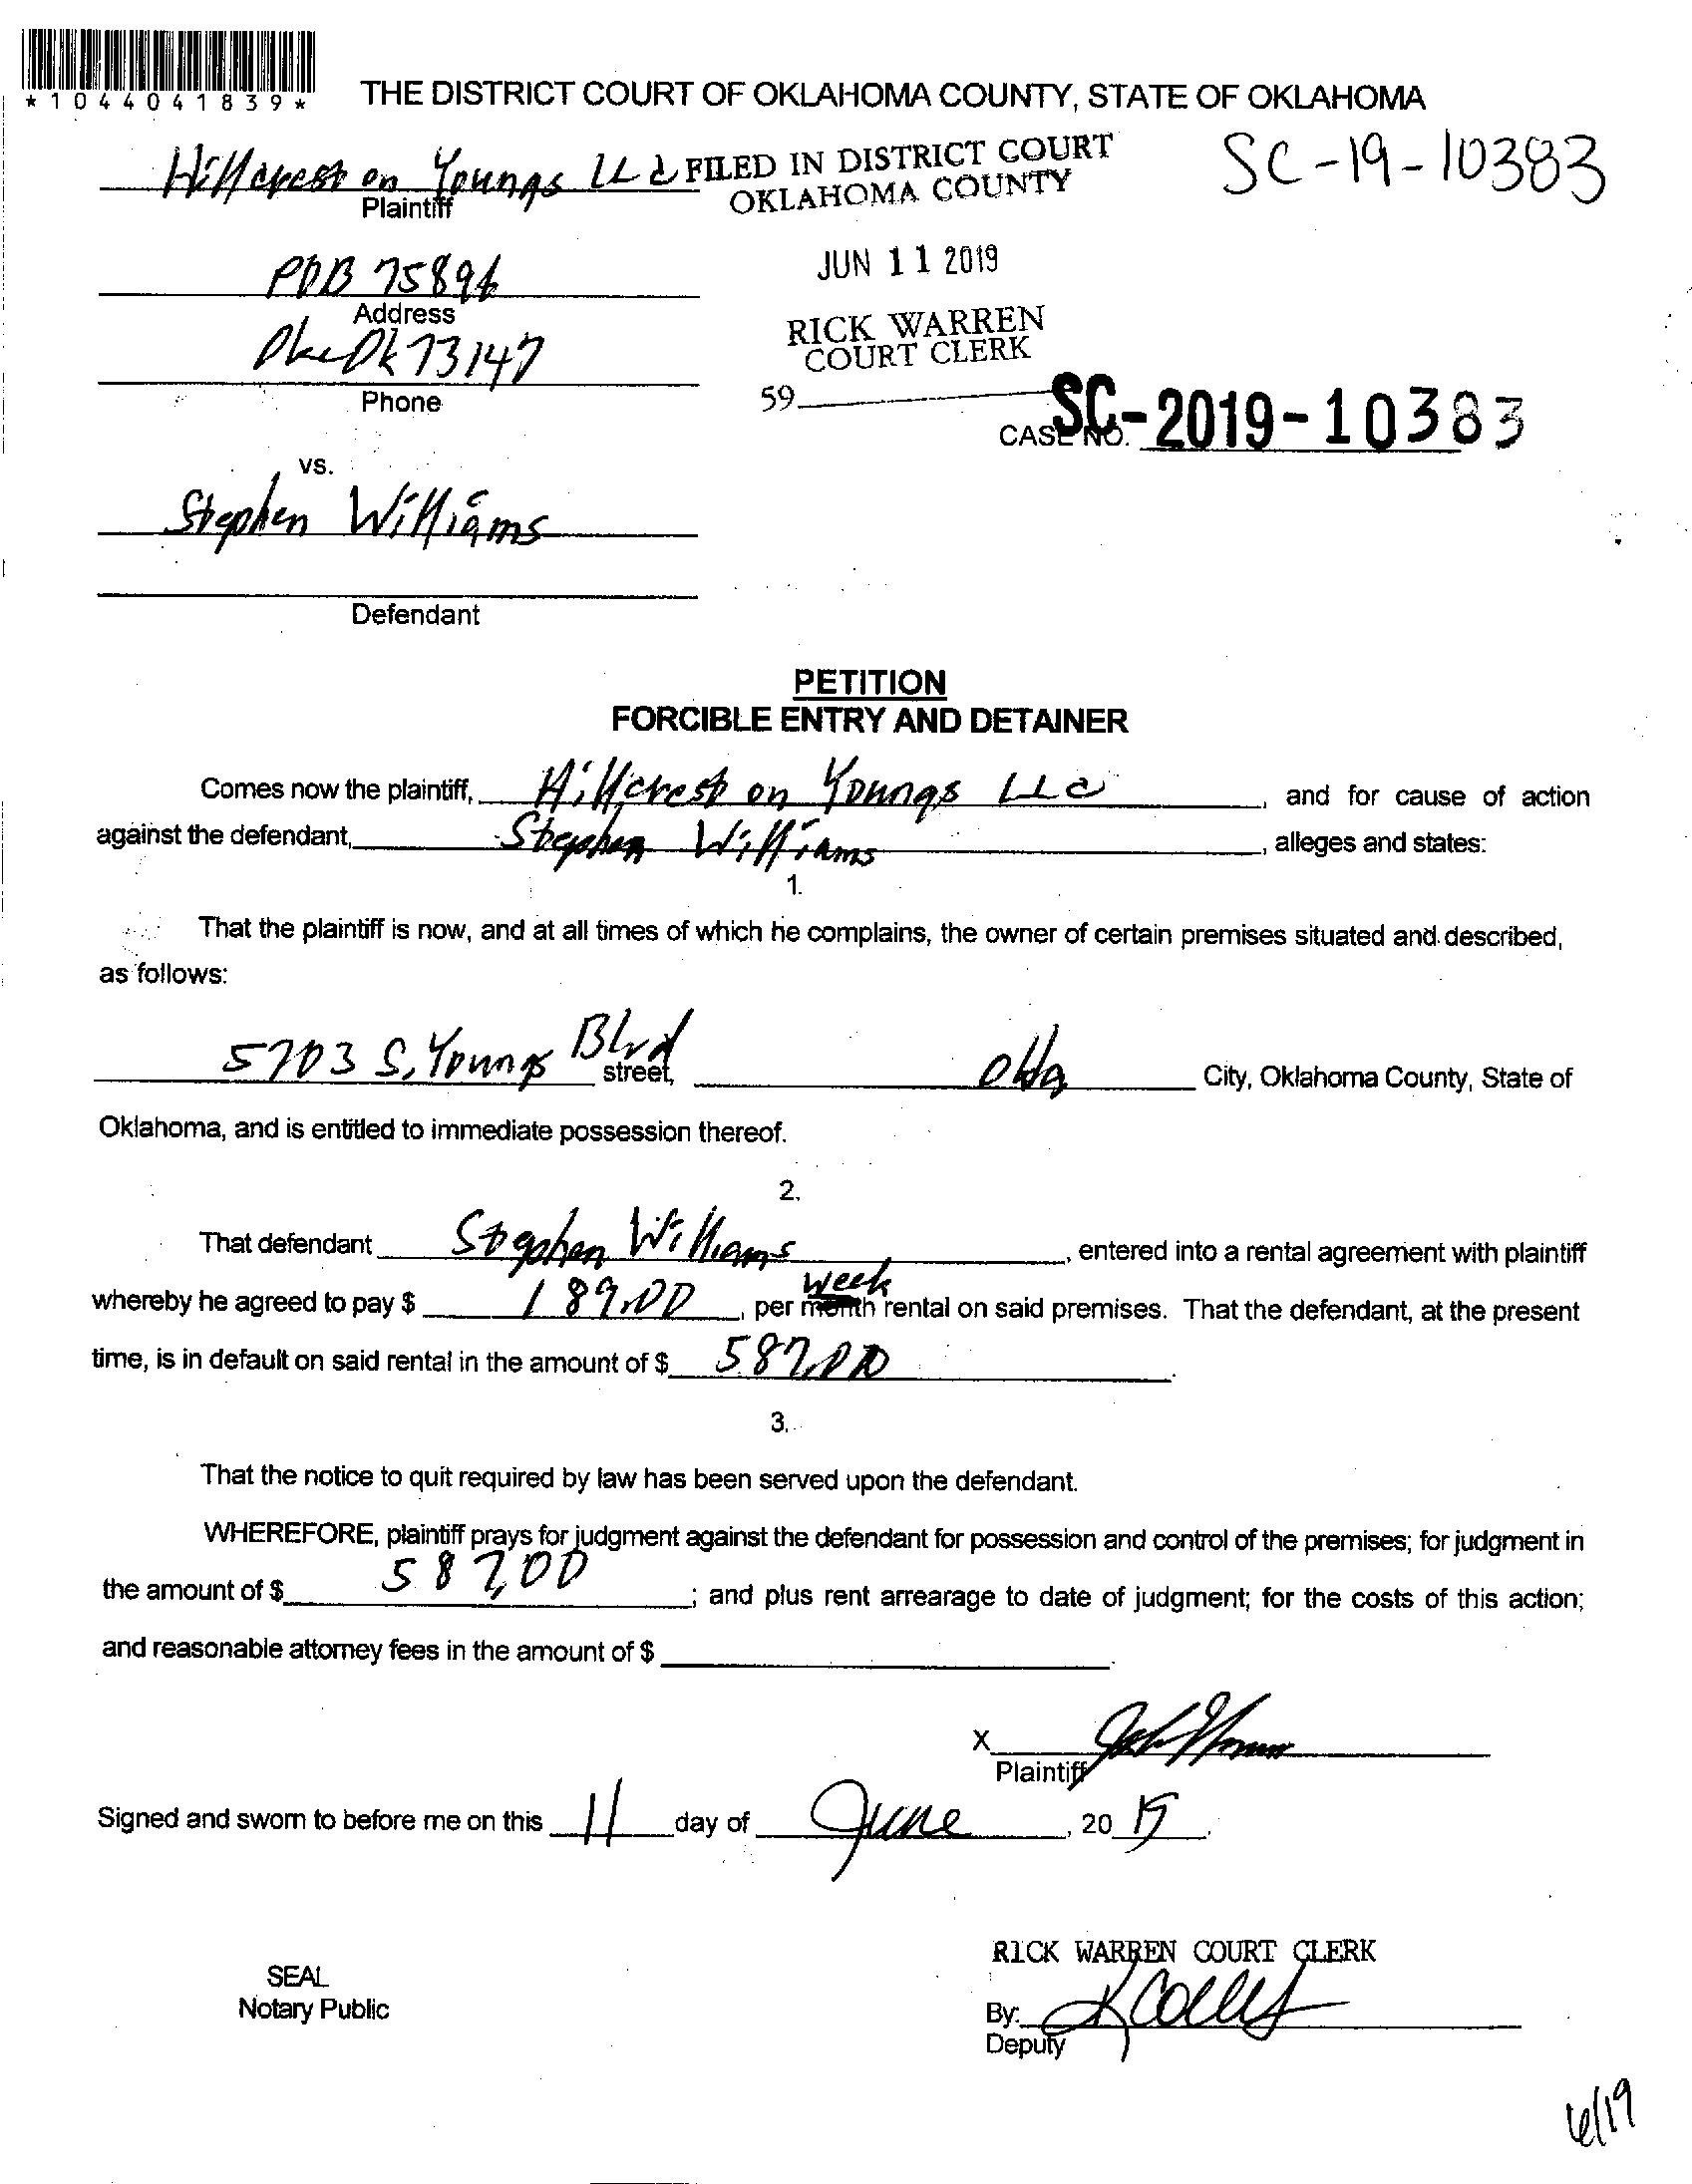 *1044041839*
THE DISTRICT COURT OF OKLAHOMA COUNTY, STATE OF OKLAHOMA
Hillcrest on Youngs LLC
Plaintiff
FILED IN DISTRICT COURT
OKLAHOMA COUNTY
SC-19-10383
POB 75896
Address
JUN 11 2019
Ok 73147
Phone
RICK WARREN
COURT CLERK
59
CASE NO. SC-2019-10383
vs.
Stephen Williams
Defendant
PETITION
FORCIBLE ENTRY AND DETAINER
Comes now the plaintiff, Hillcrest on Youngs LLC, and for cause of action
against the defendant, Stephen Williams, alleges and states:
1.
That the plaintiff is now, and at all times of which he complains, the owner of certain premises situated and described,
as follows:
5703 S, Youngs Blvd street, Okla City, Oklahoma County, State of
Oklahoma, and is entitled to immediate possession thereof.
2.
That defendant Stephen Williams, entered into a rental agreement with plaintiff
week
whereby he agreed to pay $ 189.00, per month rental on said premises. That the defendant, at the present
time, is in default on said rental in the amount of $ 587.00.
3.
That the notice to quit required by law has been served upon the defendant.
WHEREFORE, plaintiff prays for judgment against the defendant for possession and control of the premises; for judgment in
the amount of $ 587,00; and plus rent arrearage to date of judgment; for the costs of this action;
and reasonable attorney fees in the amount of $.
X
Plaintiff
Signed and sworn to before me on this 11 day of June, 20 19.
RICK WARREN COURT CLERK
SEAL
Notary Public
By:
Deputy
6/19